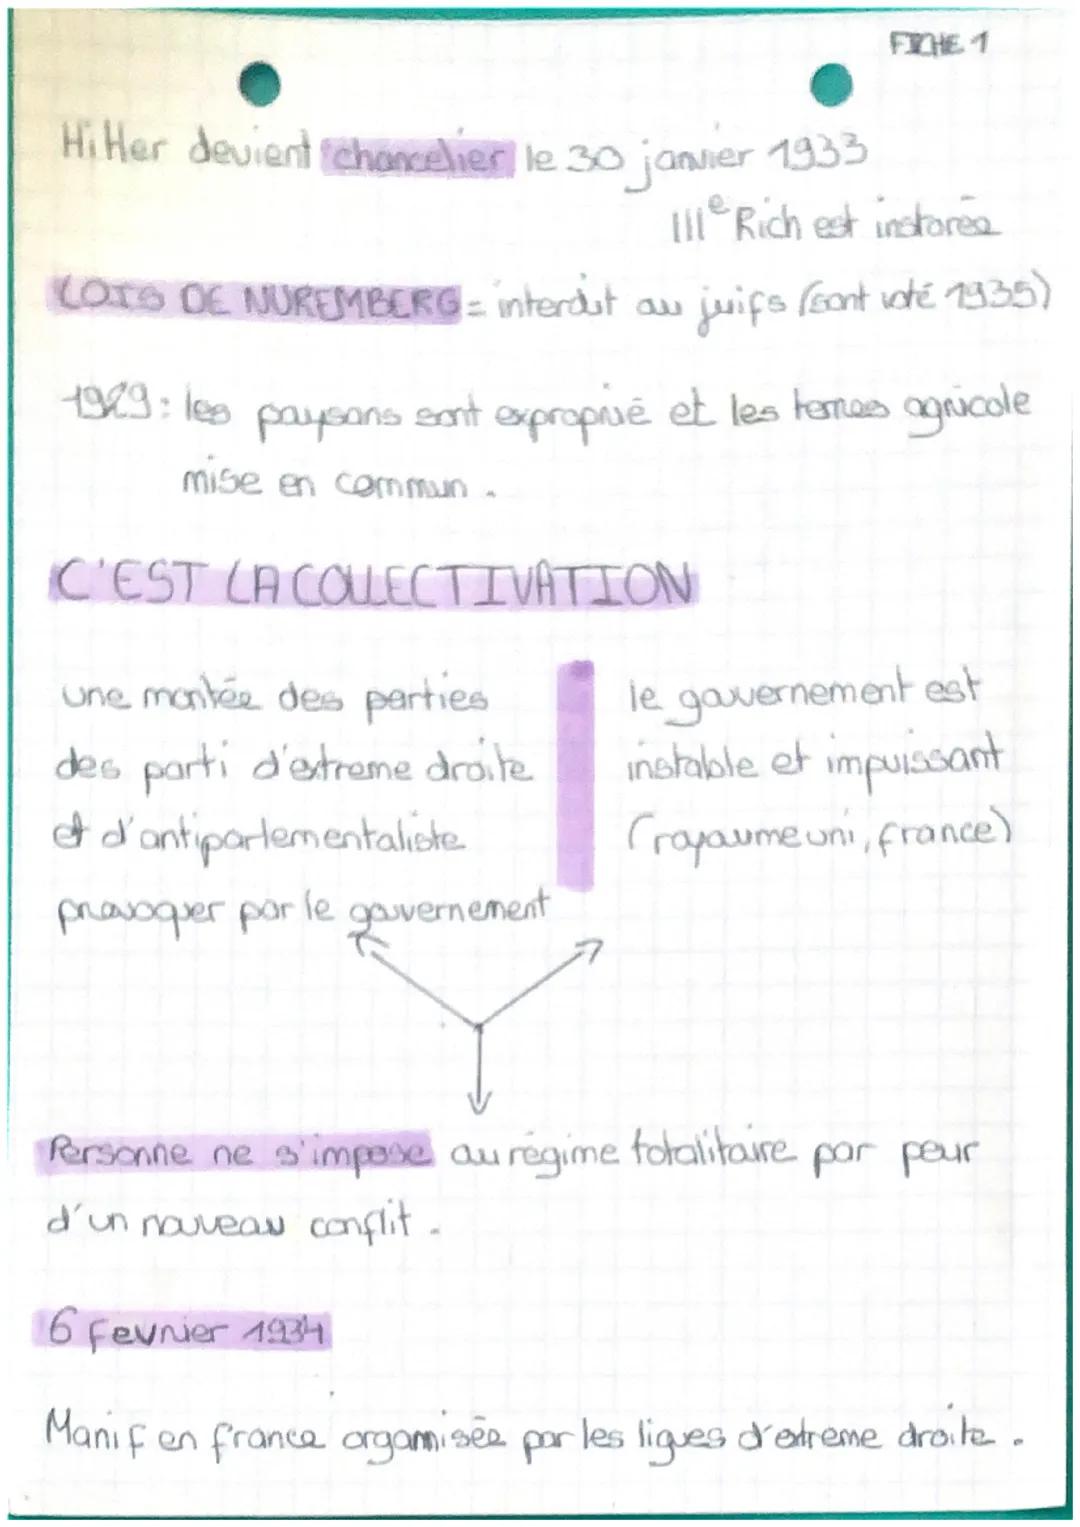 FICHE 1
Hitler devient chancelier le 30 janvier 1933
IIIe Rich est instorée
LOIS DE NUREMBERG = interdit au juifs (sont voté 1935)
1929 : les paysans sont exproprié et les terres agricole
mise en commun .
C'EST LA COLLECTIVATION
une montée des parties
des parti d'extreme droite
et d'antiparlementaliste
provoquer par le gouvernement
le gouvernement est
instable et impuissant
(royaume uni, france)
Personne ne s'impose au régime totalitaire par peur
d'un nouveau conflit .
6 fevrier 1934
Manif en france organnisée par les ligues d'extreme droite .